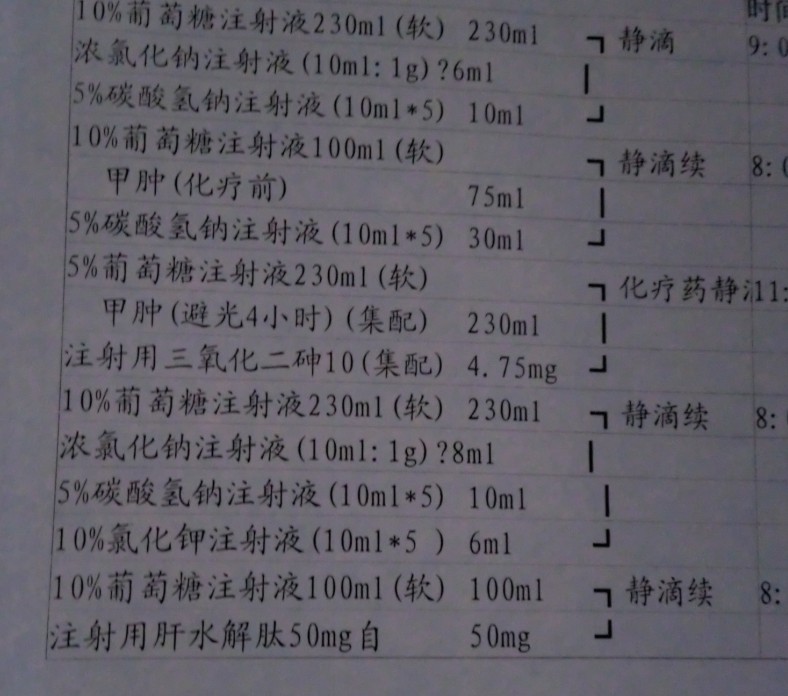 时间
10%葡萄糖注射液230ml(软) 230ml 静滴 9:0
浓氯化钠注射液(10ml:1g)?6ml
5%碳酸氢钠注射液(10ml*5) 10ml
10%葡萄糖注射液100ml(软) 静滴续 8:0
甲肿(化疗前) 75ml
5%碳酸氢钠注射液(10ml*5) 30ml
5%葡萄糖注射液230ml(软) 化疗药静 11:
甲肿(避光4小时)(集配) 230ml
注射用三氧化二砷10(集配) 4.75mg
10%葡萄糖注射液230ml(软) 230ml 静滴续 8:
浓氯化钠注射液(10ml:1g)?8ml
5%碳酸氢钠注射液(10ml*5) 10ml
10%氯化钾注射液(10ml*5 ) 6ml
10%葡萄糖注射液100ml(软) 100ml 静滴续 8:
注射用肝水解肽50mg自 50mg